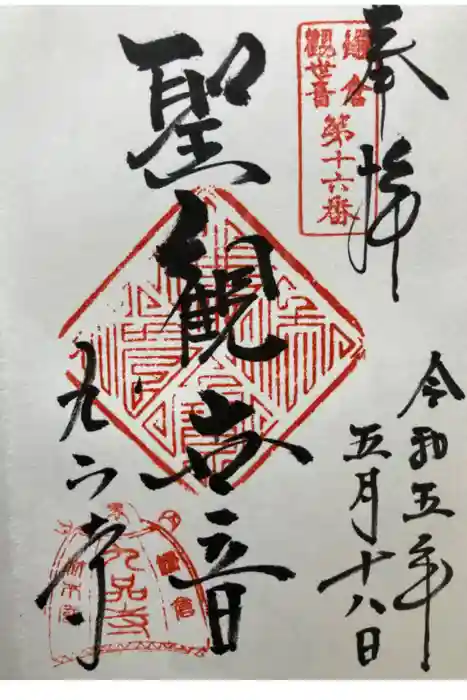 奉拝
鎌倉
観世音
第十六番
令和五年
五月十八日
聖観世音
九品寺
九品寺
鎌倉